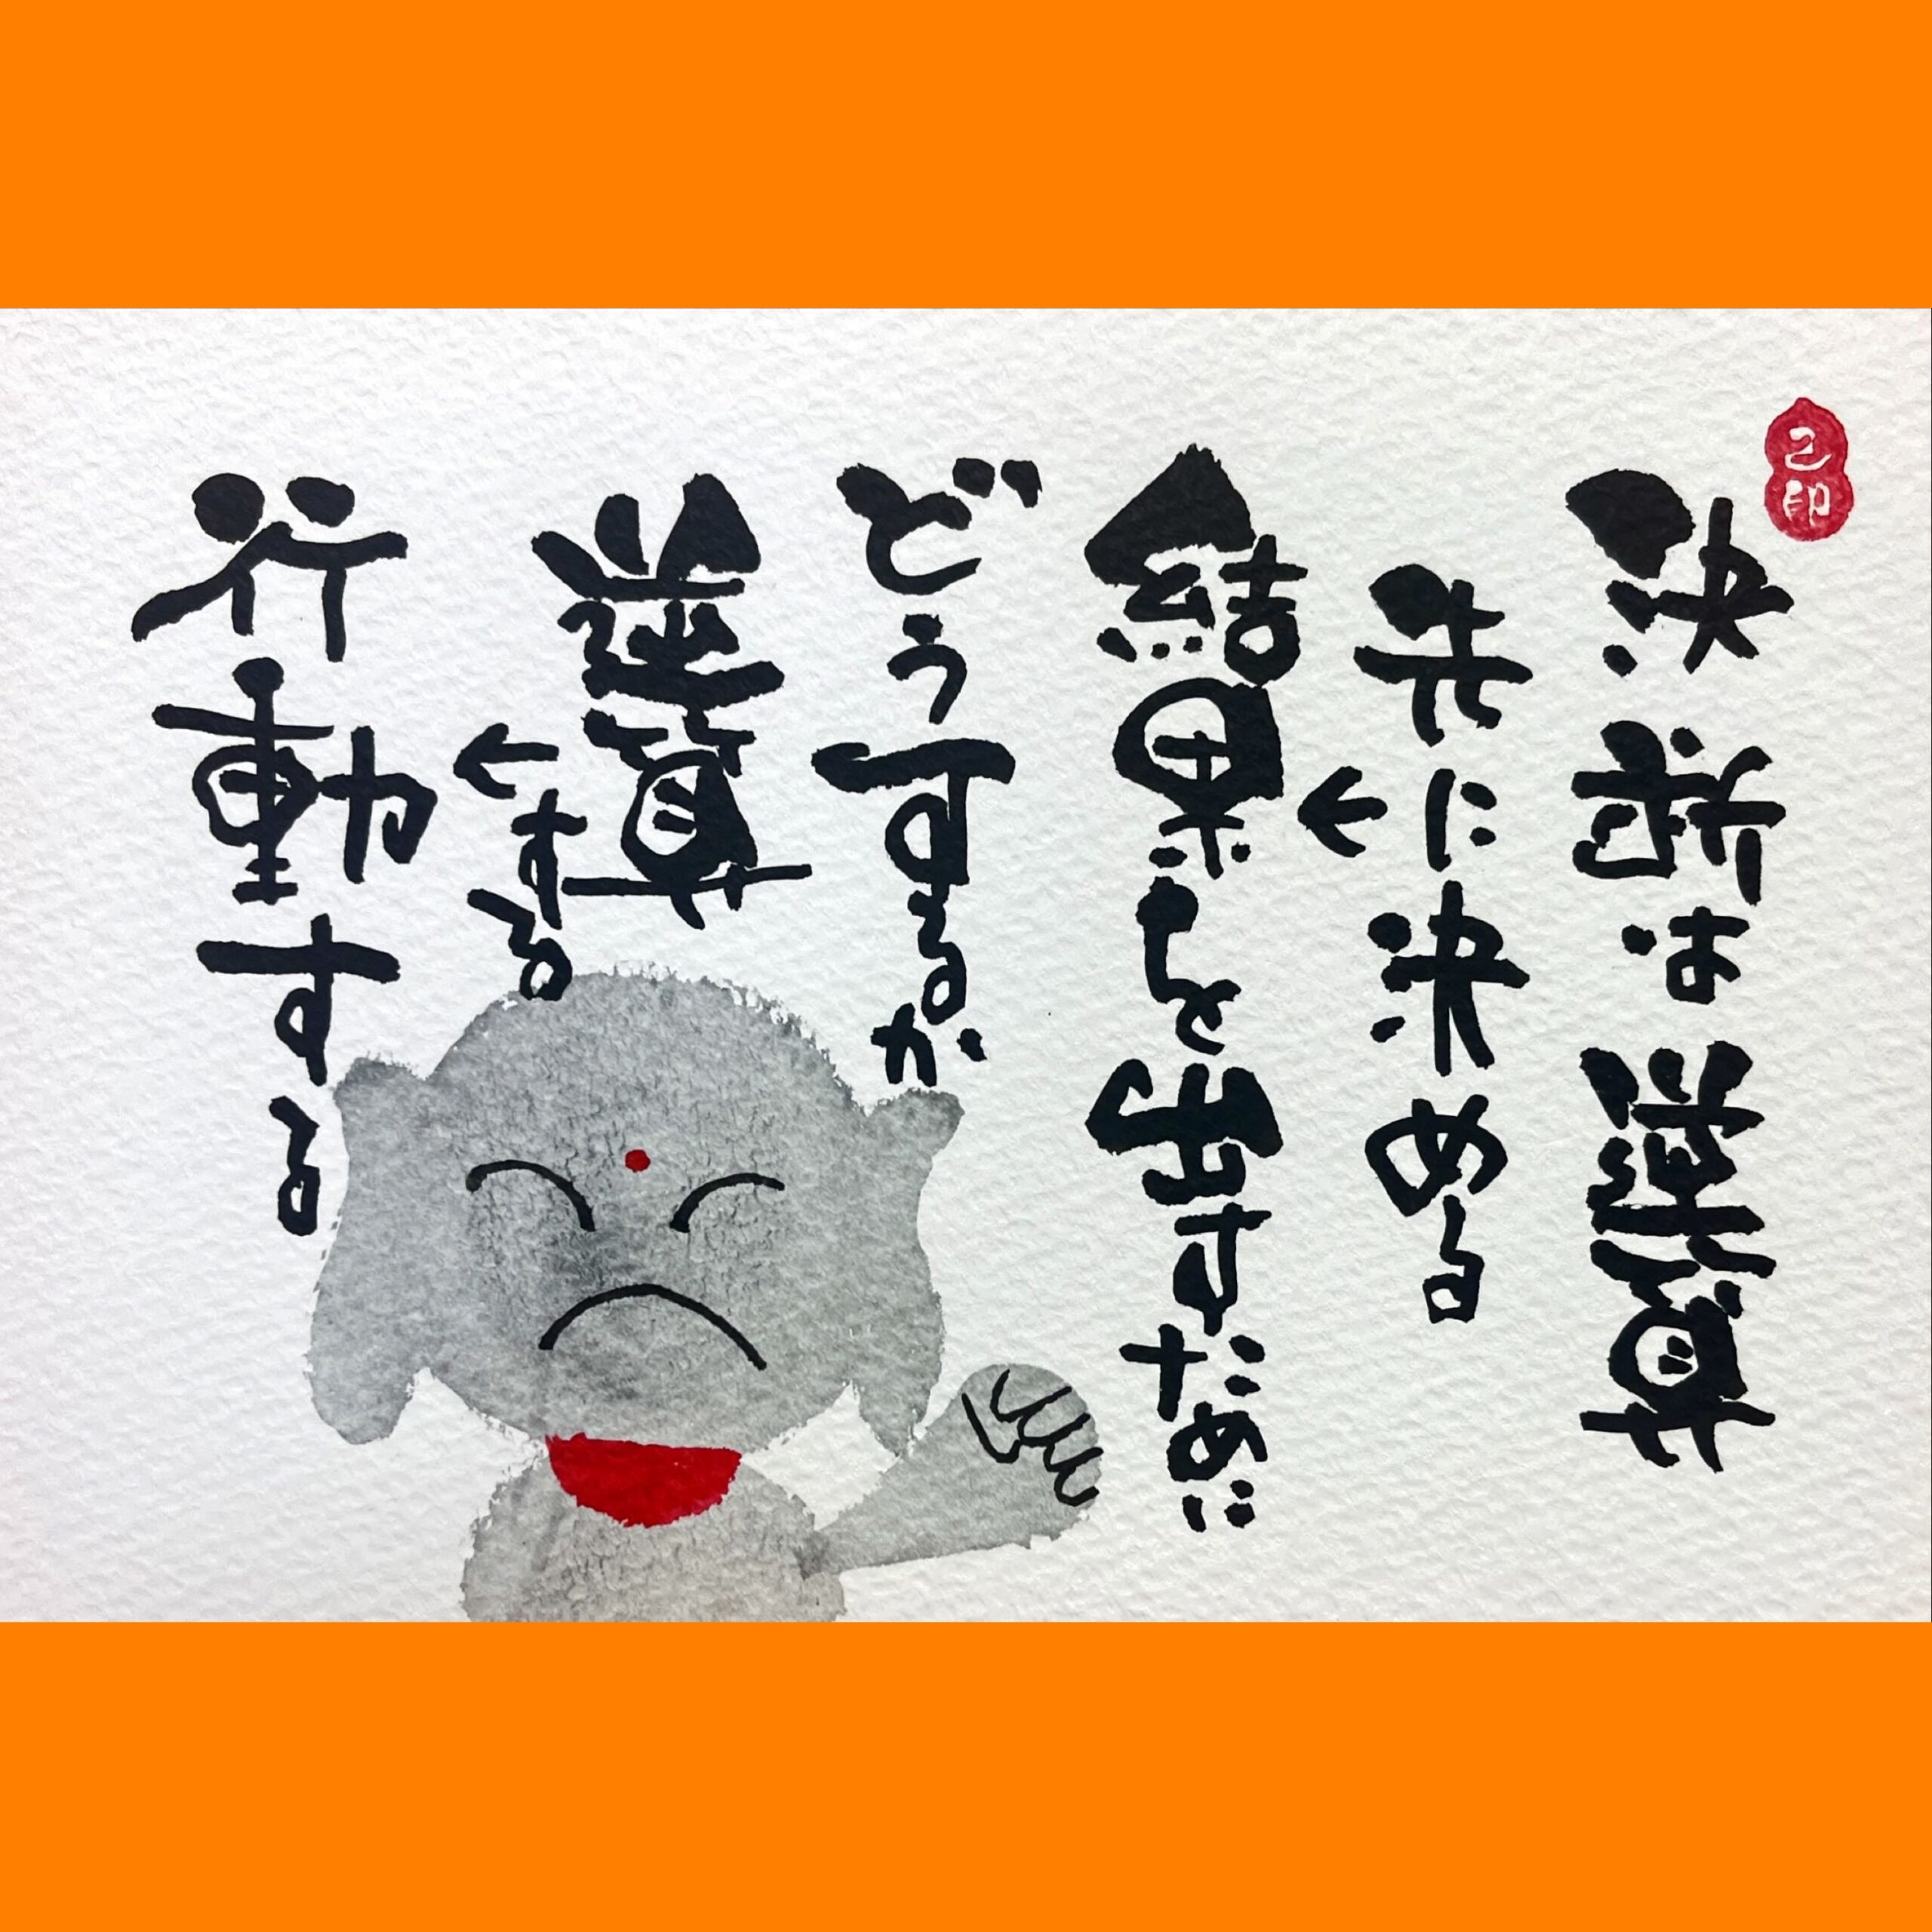 己
印
決断は逆算
先に決める
↓
結果を出すために
どうするか
逆算
する
↓
行動する